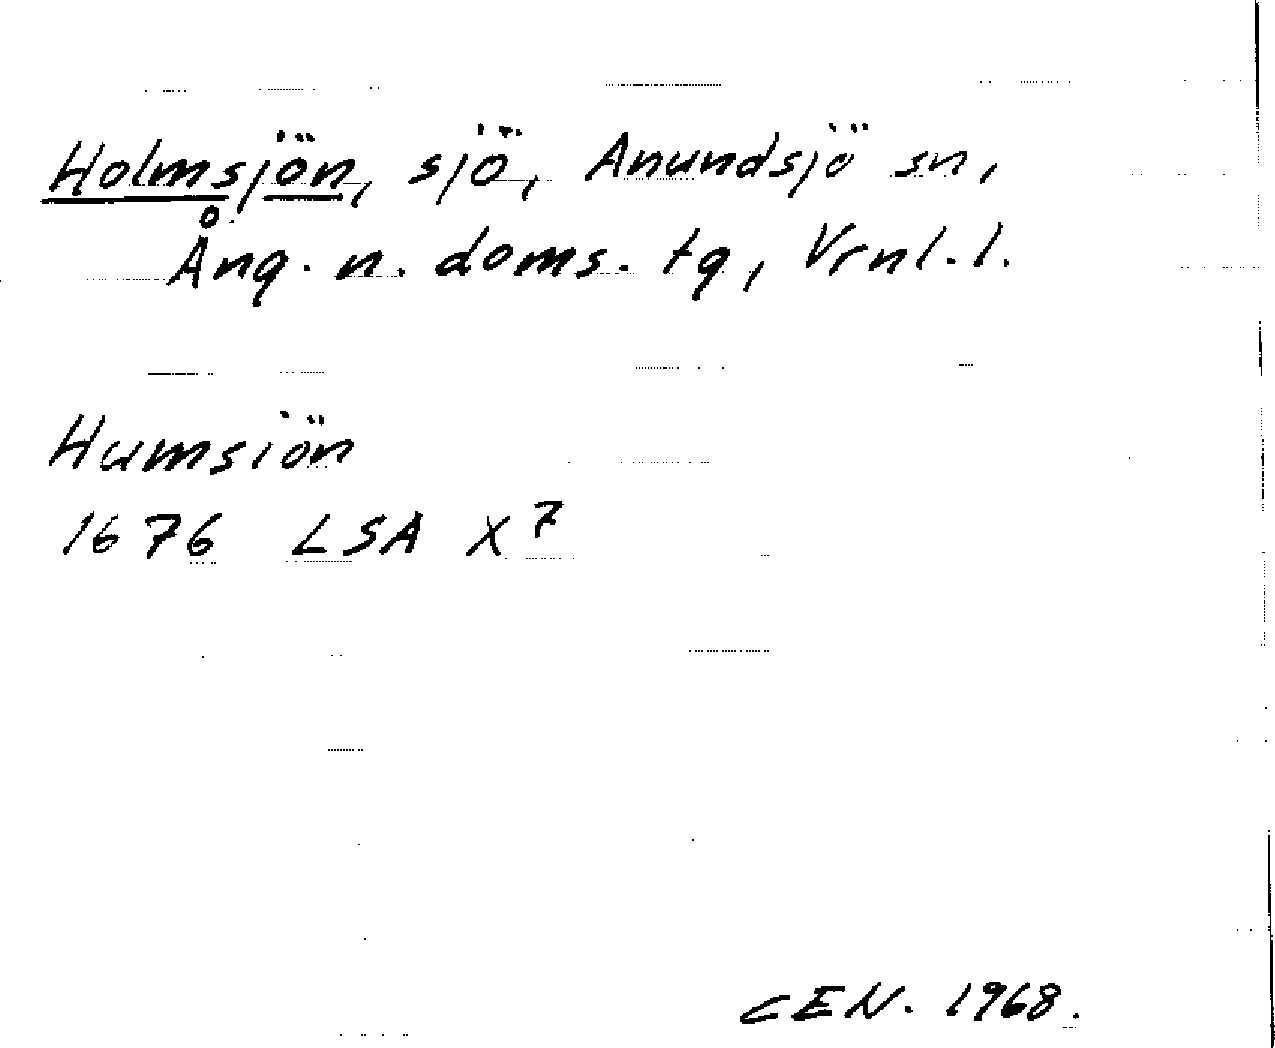 Holmsjön, sjö, Anundsjö sn,
Ång. n. doms. tg, Vrnl. l.
Humsiön
1676 LSA X7
CEN. 1968.